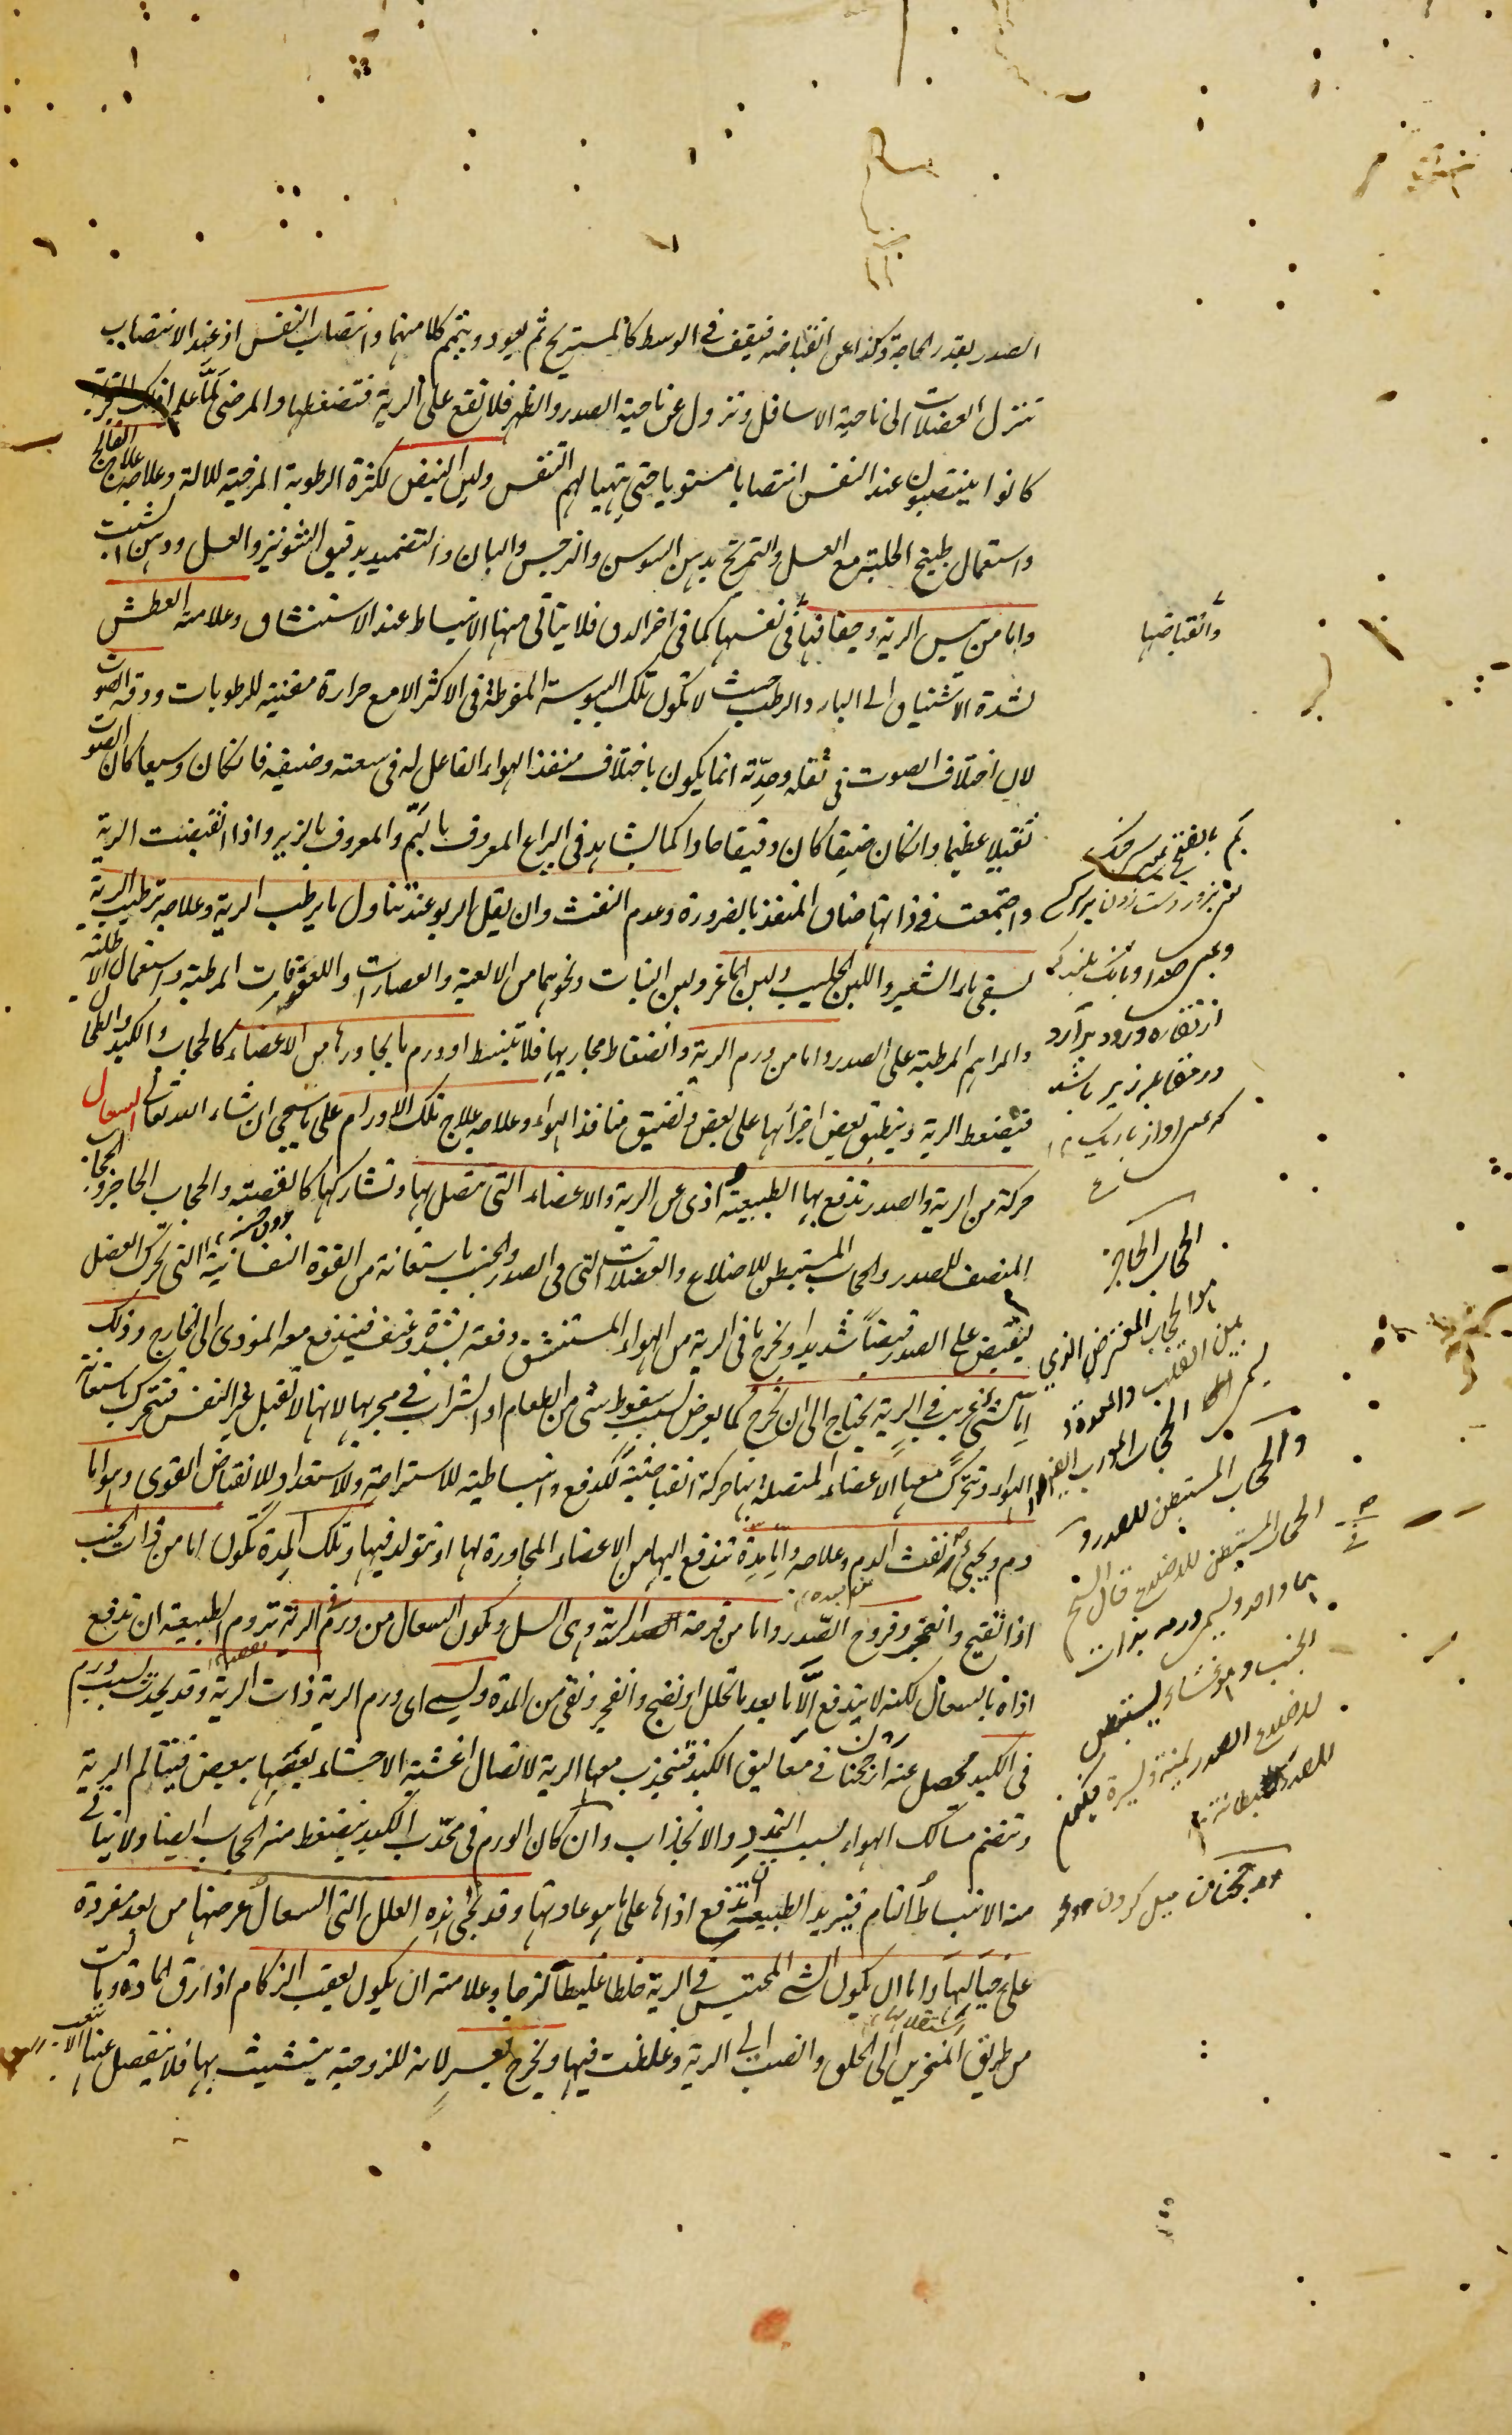 الصدر بقدر الحاجة وكذا عن انقباضه فيقف فى الوسط كالمستريح ثم يعود ويتمم كلامنهما وانتصاب النفس اذ عند الانتصاب
تنزل العضلات الى ناحية الاسافل وتزول عن ناحية الصدر والظهر فلا تقع على الرية فتضغطها والمرضى
كانوا ينتصبون عند النفس انتصابا مستويا حتى يتهيا لهم التنفس ولين النبض لكثرة الرطوبة المرخية للالة وعلاجه علاج الفالج
واستعمال طبيخ الحلبة مع العسل والتمريخ بدهن السوسن والنرجس والبان والتضميد بدقيق الشونيز والعسل ودهن الشبت
واما من يبس الرية وجفافها فى نفسها كما فى اخر الدق فلا يتاتى منها الانبساط عند الاستنشاق وعلامته العطش
وانقباضها
لشدة الاشتياق الى البارد الرطب حيث لا تكون تلك اليبوسة المفرطة فى الاكثر الا مع حرارة مفنية للرطوبات ودقة الصوت
لان اختلاف الصوت فى ثقله وحدّته انما يكون باختلاف منفذ الهواء الفاعل له فى سعته وضيقه فان كان وسيعا كان الصوت
ثقيلا عظيما وان كان ضيقا كان دقيقا حادا كما يشاهد فى اليراع المعروف بالبَمّ والمعروف بالزير واذا انقبضت الرية
واجتمعت فى ذاتها ضاق المنفذ بالضرورة وعدم النفث وان يقل الربو عند تناول ما يرطب الرية وعلاجه ترطيب الرية
بسقى ماء الشعير واللبن الحليب ولبن الماعز ولبن النبات ونحوهما من الالعبة والعصارات واللعوقات المرطبة واستعمال الاطلية
والمراهم المرطبة على الصدر واما من ورم الرية وانضغاط مجاريها فلا تنبسط او ورم ما يجاورها من الاعضاء كالحجاب والكبد والطحال
فتنضغط الرية وينطبق بعض اجزائها على بعض وتضيق منافذ الهواء وعلاجه علاج تلك الاورام على ما سيجى ان شاء الله تعالى السعال
حركة من الرية والصدر تدفع بها الطبيعة اذى عن الرية والاعضاء التى تتصل بها وتشاركها كالقصبة والحجاب الحاجز والحجاب
المنصف للصدر والحجاب المستبطن للاضلاع والعضلات التى فى الصدر والجنب باستعانة من القوة النفسانية التى تحرك العضل
ليقبض على الصدر قبضاً شديدا ويخرج ما فى الرية من الهواء المستنشق دفعة بشدة وعنف فيندفع معه الموذى الى الخارج وذلك
اما لشئ غريب فى الرية يحتاج الى ان يخرج كما يعرض بسبب سقوط شئ من الطعام او الشراب فى مجريها لانها لا تقبل غير النفس فتتحرك باستعانة
الهواء وتتحرك معها الاعضاء المتصلة بها حركة انقباضية للدفع وانبساطية للاستراحة والاستعداد للانقباض القوى وهو اما
دم ويجيئ نفث الدم وعلاجه واما مِدة تندفع اليها من الاعضاء المجاورة لها او تتولد فيها وتلك المدة تكون اما من ذات الجنب
اذا تقيح وانفجر وقروح الصّدر واما من قرحة الرية وهى السل ويكون السعال من ورم الرية تروم الطبيعة ان تدفع
اذاه بالسعال لكنه لا يندفع الّا ما بعد ما تحلل او نضج وانفجر ونقى من المدة وليسم اى ورم الرية ذات الرية وقد يحدث بسبب ورم
فى الكبد يحصل عنه ارجحنان فى معاليق الكبد فتنجذب معها الرية لاتصال اغشية الاحشاء بعضها ببعض فيتالم الرية
وتنضم مسالك الهواء بسبب التمدد والانجذاب وان كان الورم فى محدّب الكبد ينضغط منه الحجاب ايضا ولا يتاتى
منه الانبساط التام فتريد الطبيعة ان تدفع اذاها على ما هو عادتها وقد تجئ هذه العلل التى السعال عرضها من بعد مفردة
على حيالها واما ان يكون الشئ المحتبس فى الرية خلطا غليظا لزجا وعلامته ان يكون بعقب الزكام اذا رق المادة ومالت
من طريق المنخرين الى الحلق وانصبت الى الرية وغلظت فيها ويخرج بعسر لانه للزوجته يتشبث بها فلا ينفصل عنها الا بتعب
بم بالفتح
از نقاره و رود بر آرد
در مقابل زير باشد
كه عبى اواز باريك
الحجاب الحاجز
هو الحجاب المعترض الذى
بين القلب والمعدة
والحجاب المستبطن للصدر و
الحجاب المستبطن للاضلاع قال الشيخ
الجنب وهو غشاء يستبطن
للاضلاع الصدر يمنة ويسرة
ارجحنان ميل كردن